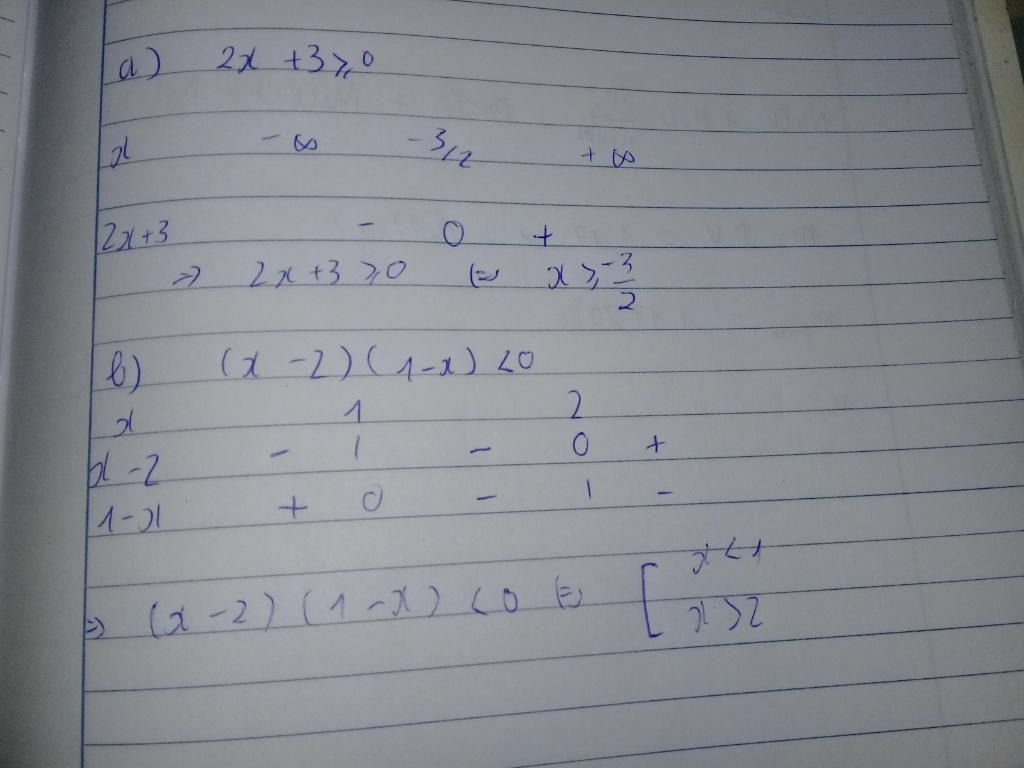 a) 2x + 3 ≥ 0
x -∞ -3/2 +∞
2x+3 - 0 +
⇒ 2x+3 ≥ 0 ⇔ x ≥ -3/2
b) (x - 2)(1-x) <0
x 1 2
x-2 - | - 0 +
1-x + 0 - | -
⇒ (x-2)(1-x) <0 ⇔ [ x<1
x>2